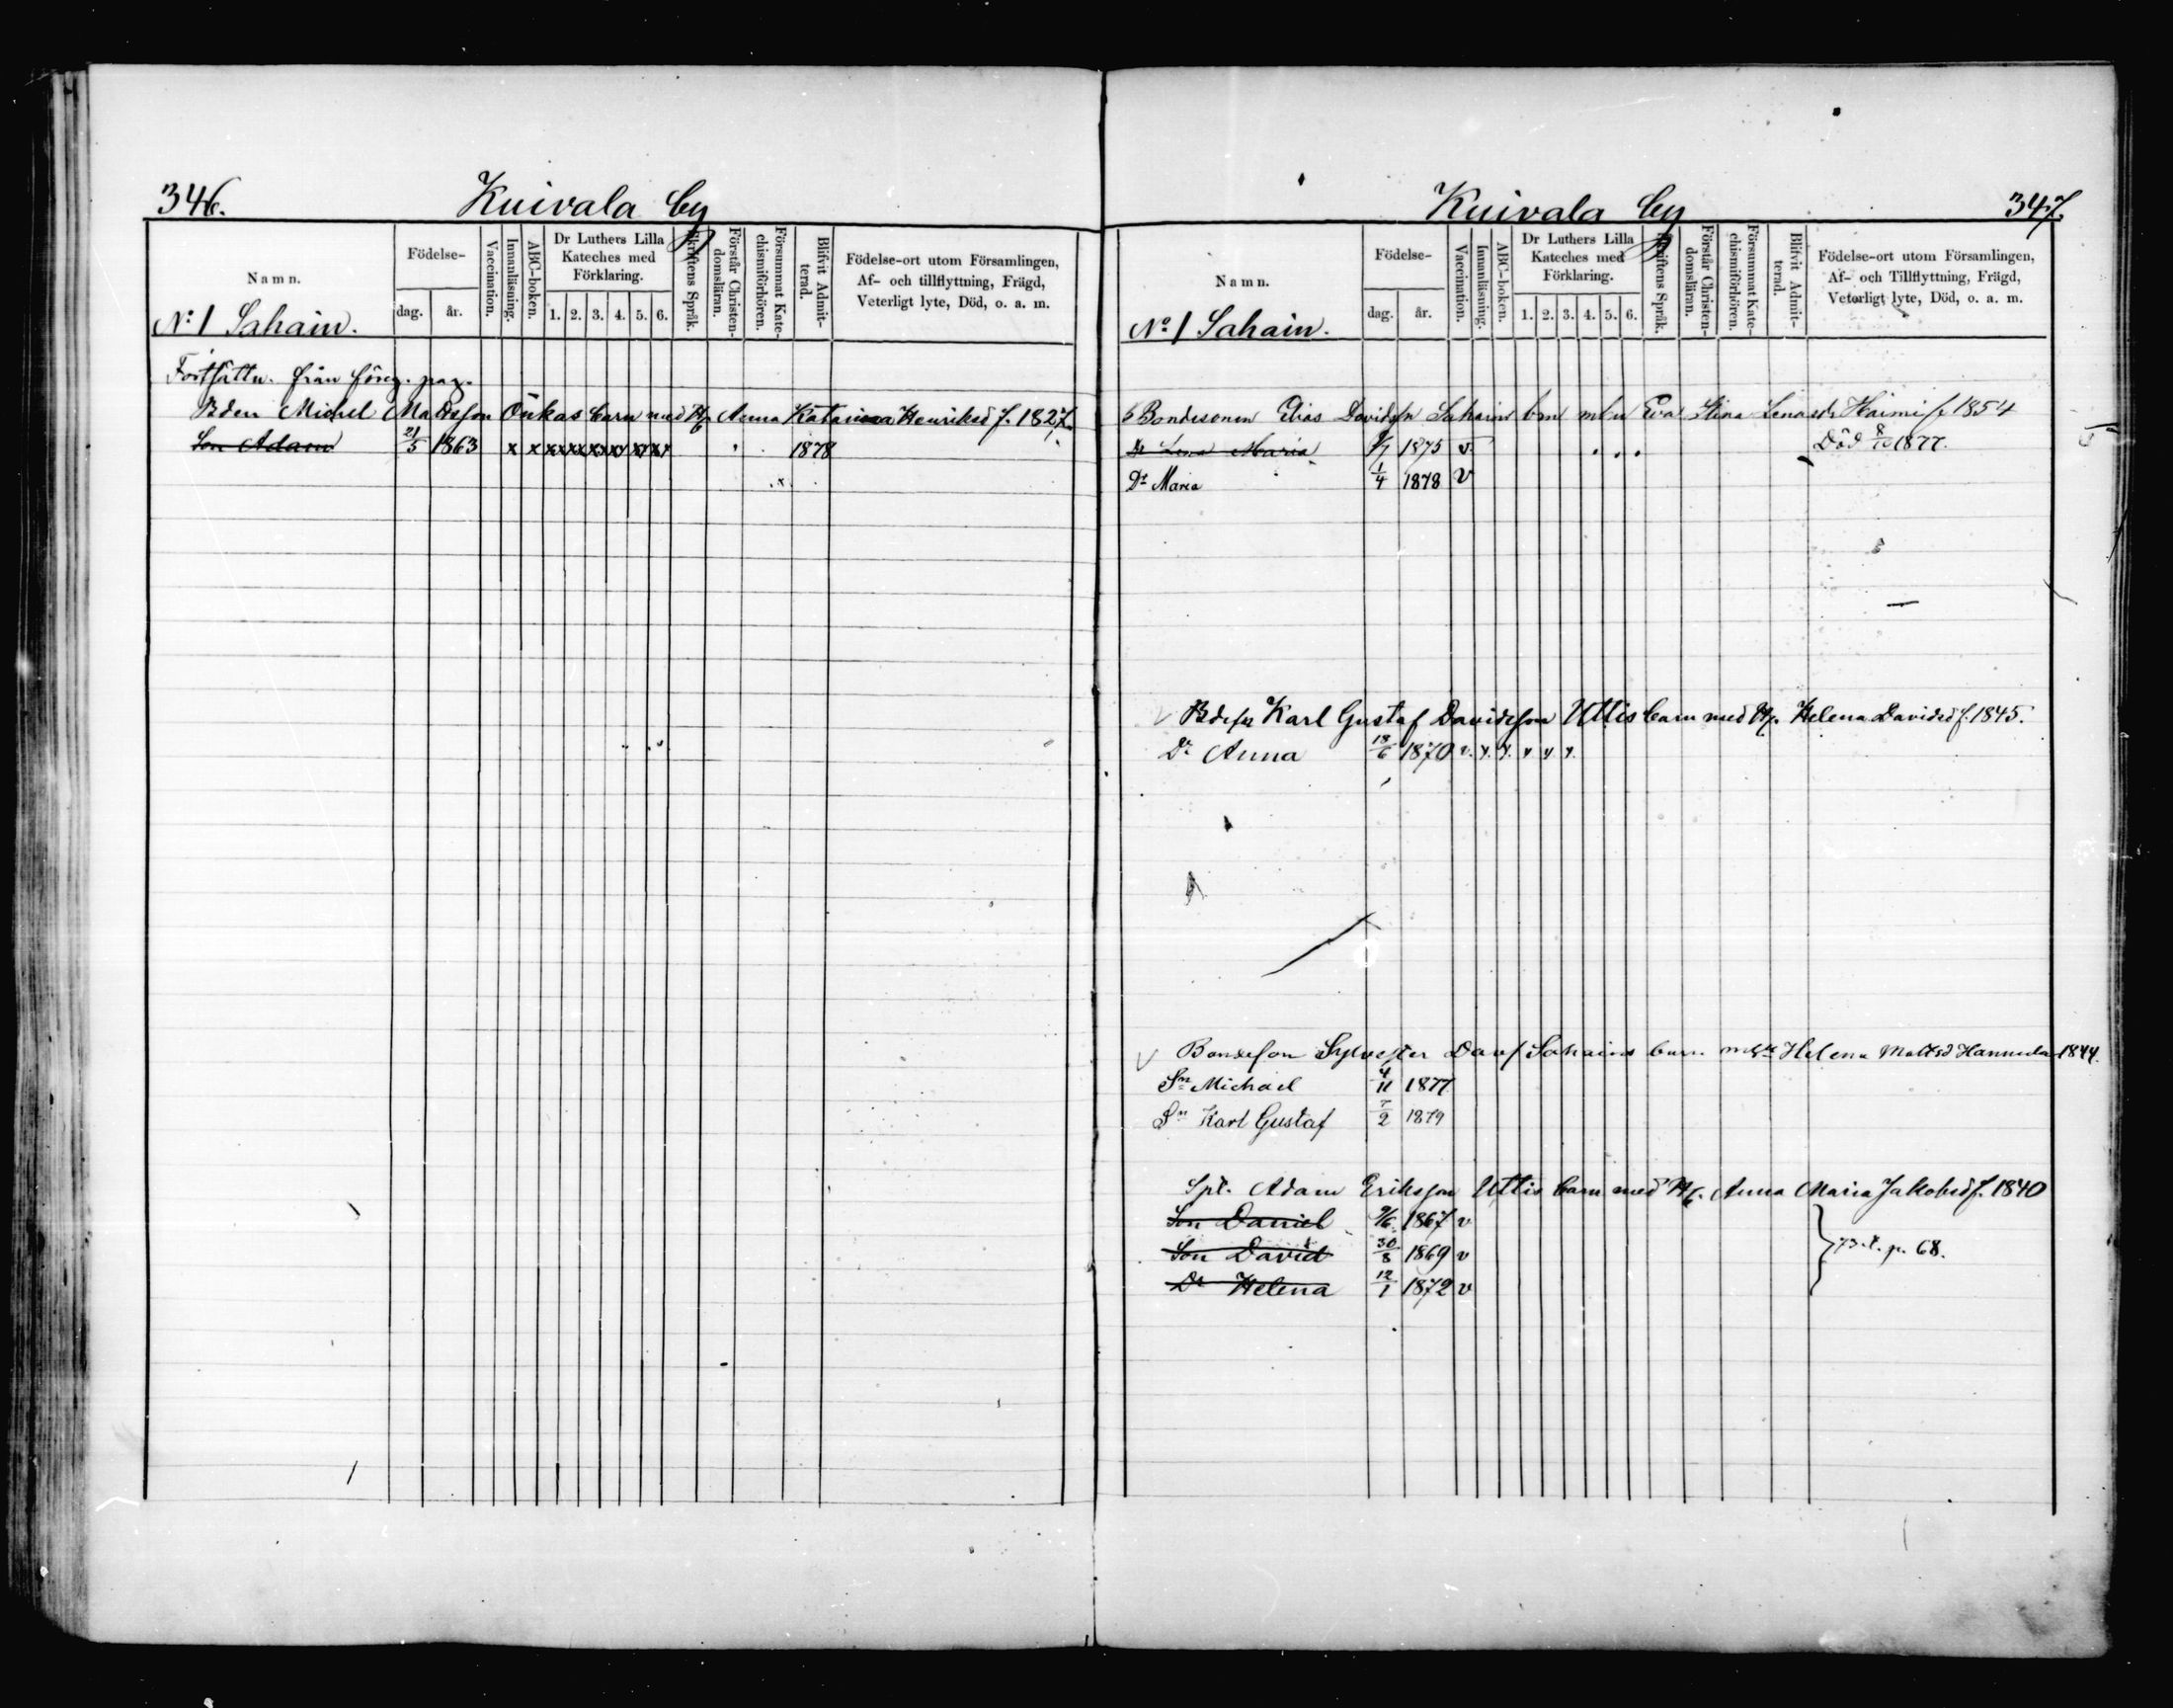 346.
Kuivala by
Namn.
Födelse-
dag.
år.
Vaccination.
Innanläsning.
ABC-boken.
Dr Luthers Lilla Kateches med Förklaring.
1. 2. 3. 4. 5. 6.
Skriftens Språk.
Förstår Christendomsläran.
Försummat Katechismiförhören.
Blifvit Admitterad.
Födelse-ort utom Församlingen,
Af- och tillflyttning, Frägd,
Veterligt lyte, Död, o. a. m.
No 1 Sahain.
Fortsättn. från föreg. pag.
Bden Michel Mattsson Onkas barn med H. Anna Katarina Henriksd f. 1827.
Son Adam 21/5 1863 x x x x x x x x 1878
Kuivala by
347.
Namn.
Födelse-
dag.
år.
Vaccination.
Innanläsning.
ABC-boken.
Dr Luthers Lilla Kateches med Förklaring.
1. 2. 3. 4. 5. 6.
Skriftens Språk.
Förstår Christendomsläran.
Försummat Katechismiförhören.
Blifvit Admitterad.
Födelse-ort utom Församlingen,
Af- och Tillflyttning, Frägd,
Veterligt lyte, Död, o. a. m.
No 1 Sahain.
Bondesonen Elias Davidsn Sahain brn Eva Stina Haimi f 1854
Dr Lena Maria 1875 v. Död 8/10 1877.
Dr Maria 1/4 1878 v
Bdesn Karl Gustaf Davidsson Uttis barn med H. Helena Davidsd f. 1845.
Dr Anna 18/6 1870 v. y. y. y y y.
Bondeson Sylvester Davs Sahains barn Helena Mattsd Hannula 1844.
Sn Michael 4/11 1877
Sn Karl Gustaf 7/2 1879
Spt. Adam Eriksson Uttis barn med H. Anna Maria Jakobsd f. 1840
Son Daniel 9/6 1867 v
Son David 30/8 1869 v
p. 68.
Dr Helena 12/1 1872 v